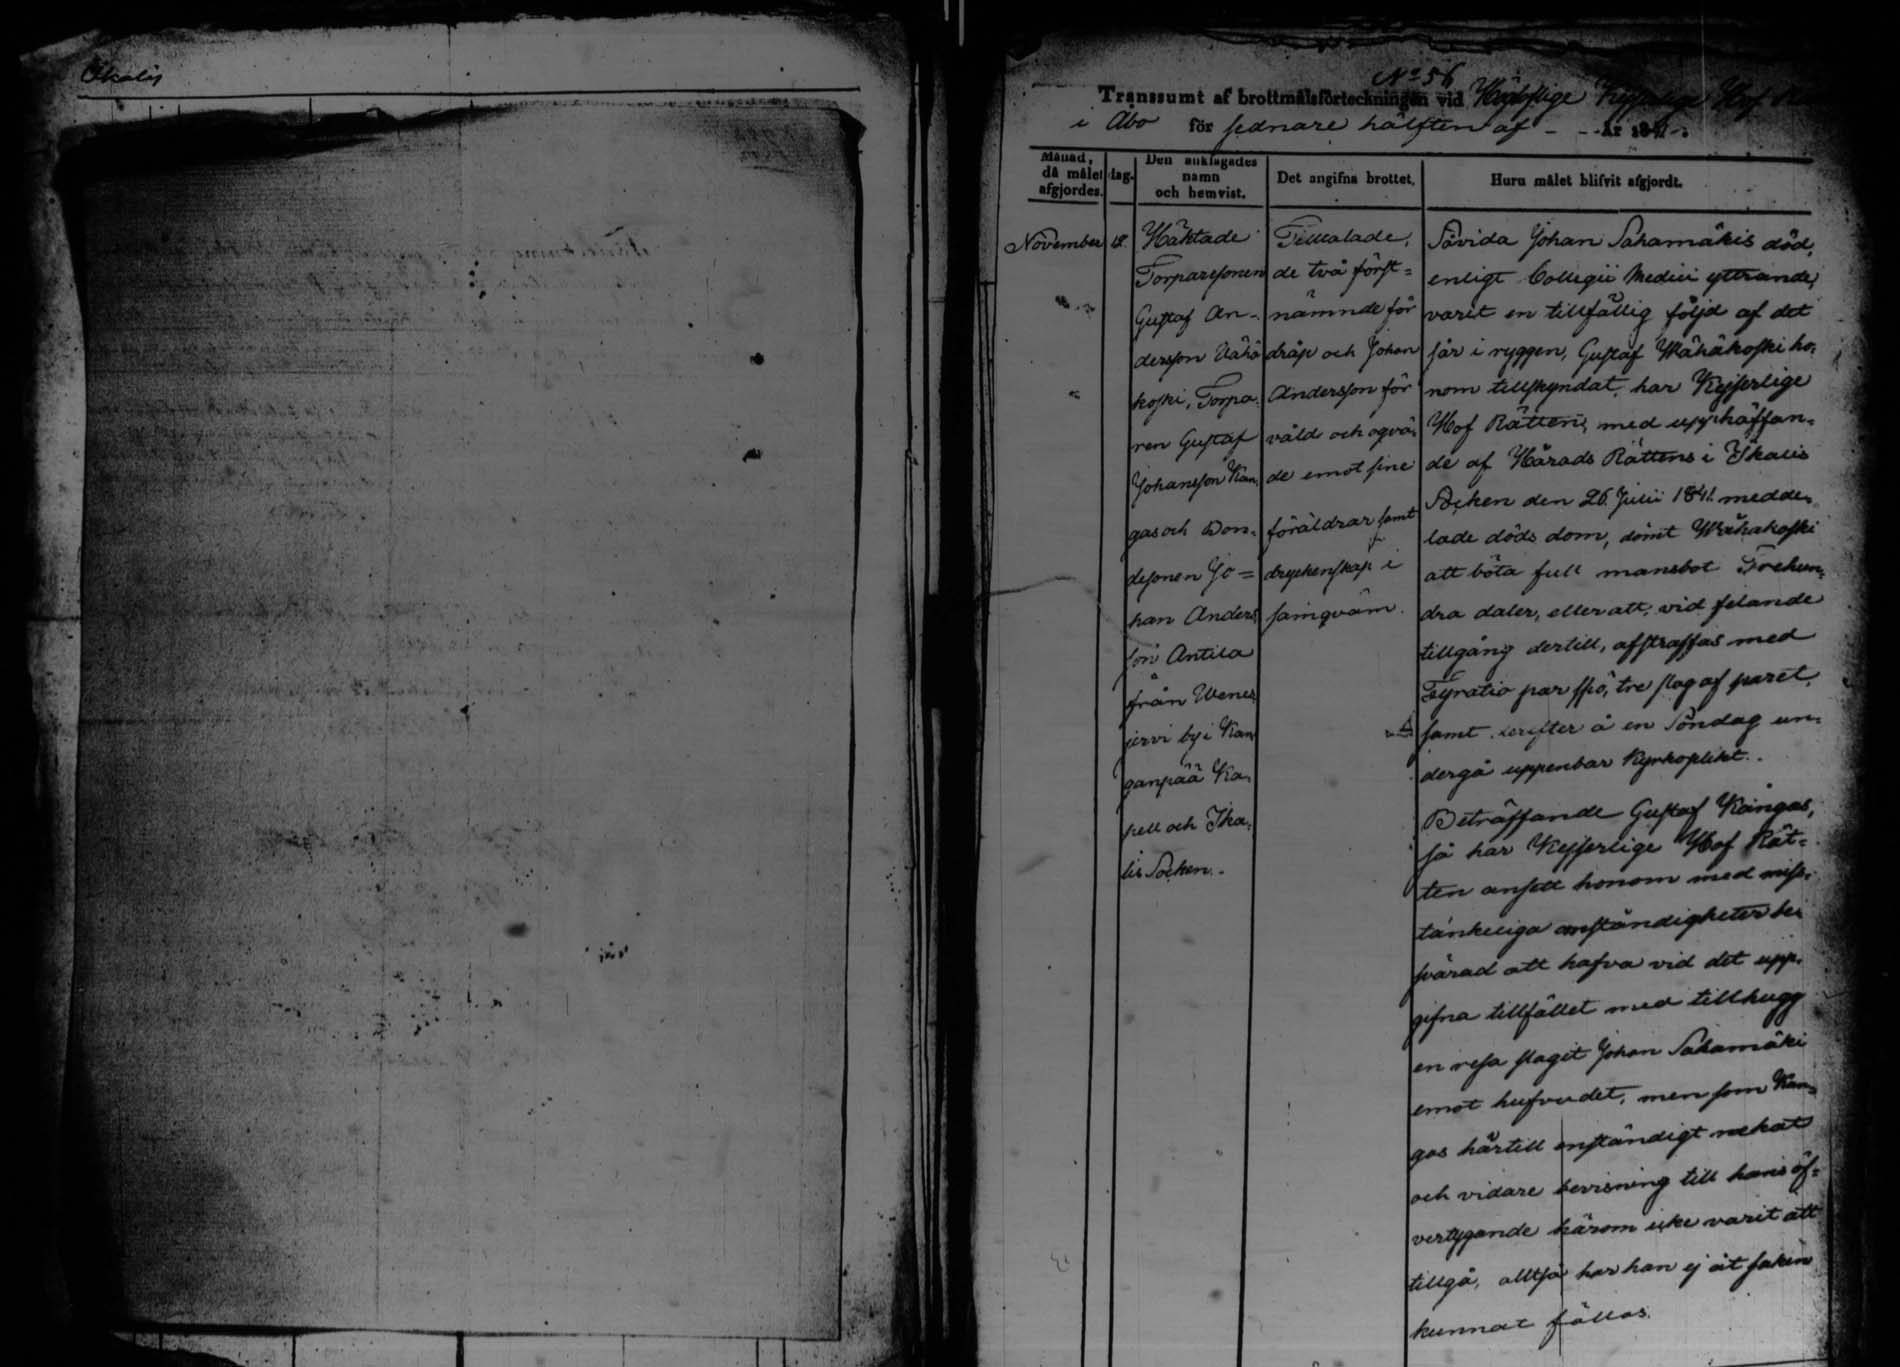 Ikalis
No 56
Transsumt af brottmålsförteckningen vid Högloflige Kejserlige Hof
i Åbo för sednare hälften af - - År 1841.
Månad, då målet afgjordes.
dag.
Den anklagades namn och hemvist.
Det angifna brottet.
Huru målet blifvit afgjordt.
November
18.
Häktade
Torparesonen
Gustaf An-
dersson Wähä
koski, Torpa-
ren Gustaf
Johansson Kan-
gas och Bon-
desonen Jo=
han Anders-
son Antila
från Wenes
jervi by i Kan
ganpää Ka-
pell och Ika-
lis Socken.
Tilltalade,
de två först=
nämnde för
dråp och Johan
Andersson för
våld och ogvä-
de emot sine
föräldrar samt
dryckenskap i
samqväm.
Såvida Johan Sahamäkis död,
enligt Collegii Medici yttrande,
varit en tillfällig följd af det
sår i ryggen, Gustaf Wähäkoski ho-
nom tillskyndat, har Kejserlige
Hof Rätten, med upphäffan-
de af Härads Rättens i Ikalis
Socken den 26 Julii 1841 medde-
lade döds dom, dömt Wähäkoski
att böta full mansbot Trehun-
dra daler, eller att, vid felande
tillgång dertill, afstraffas med
Fyratio par spö, tre slag af paret,
samt derefter å en Söndag un-
dergå uppenbar Kyrkoplikt.
Beträffande Gustaf Kangas,
så har Kejserlige Hof Rät=
ten ansett honom med miss-
tänkeliga omständigheter be-
svärad att hafva vid det upp-
gifna tillfället med tillhugg
en resa slagit Johan Sahamäki
emot hufvudet, men som Kan-
gas härtill enständigt nekat
och vidare bevisning till hans öf-
vertygande härom icke varit att
tillgå, alltså har han ej åt saken
kunnat fällas.